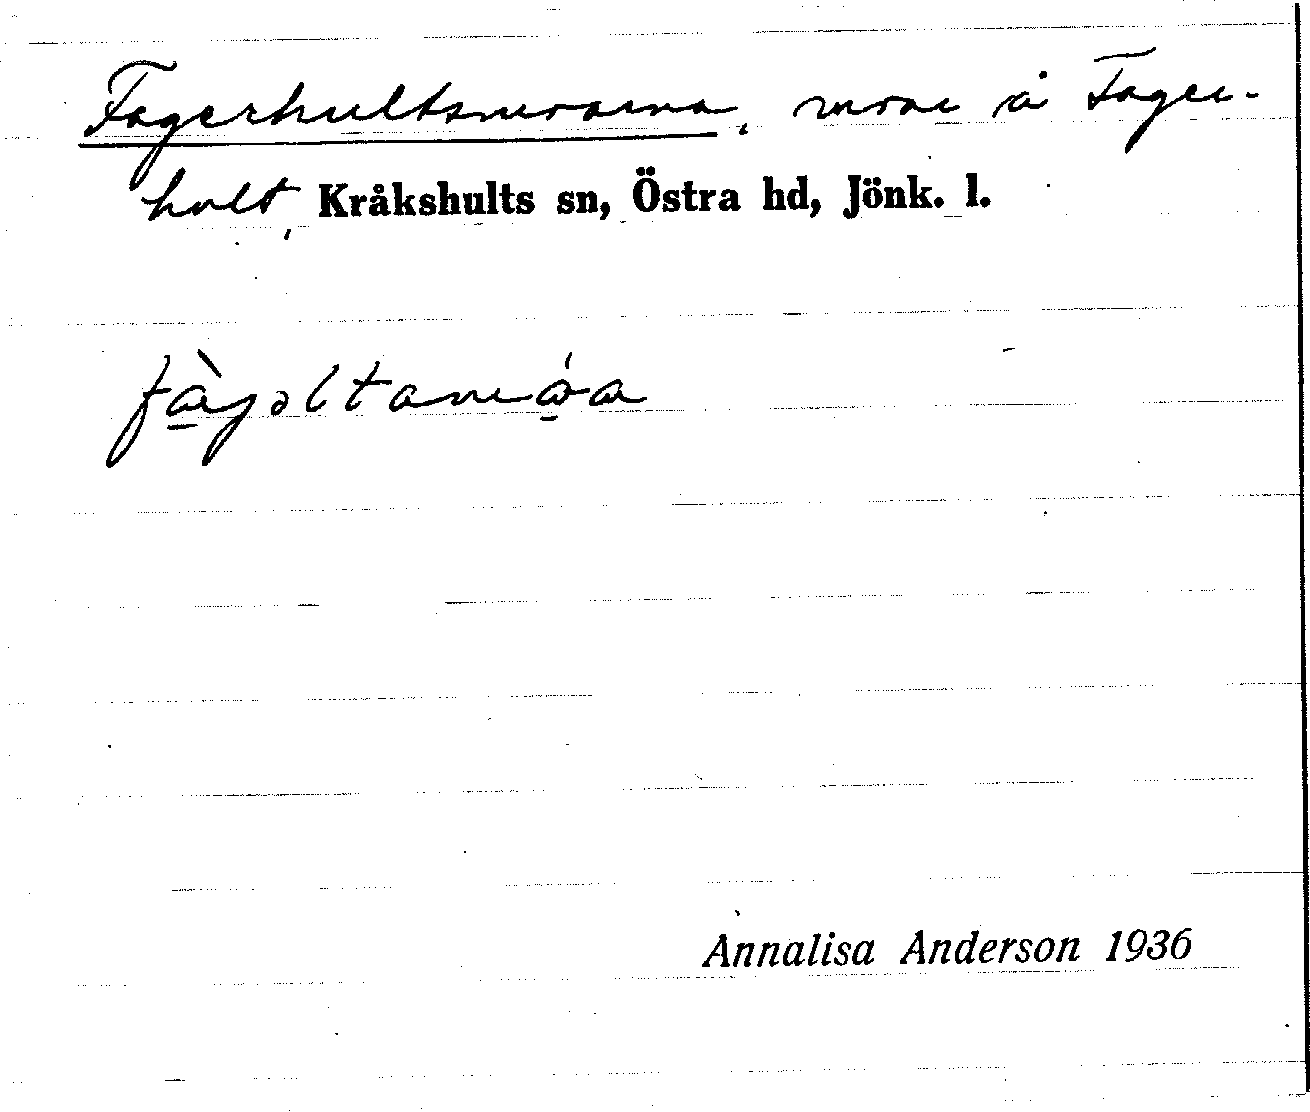 Fagerhultsmoarna, moar å Fager-
hult, Kråkshults sn, Östra hd, Jönk. l.
Annalisa Anderson 1936